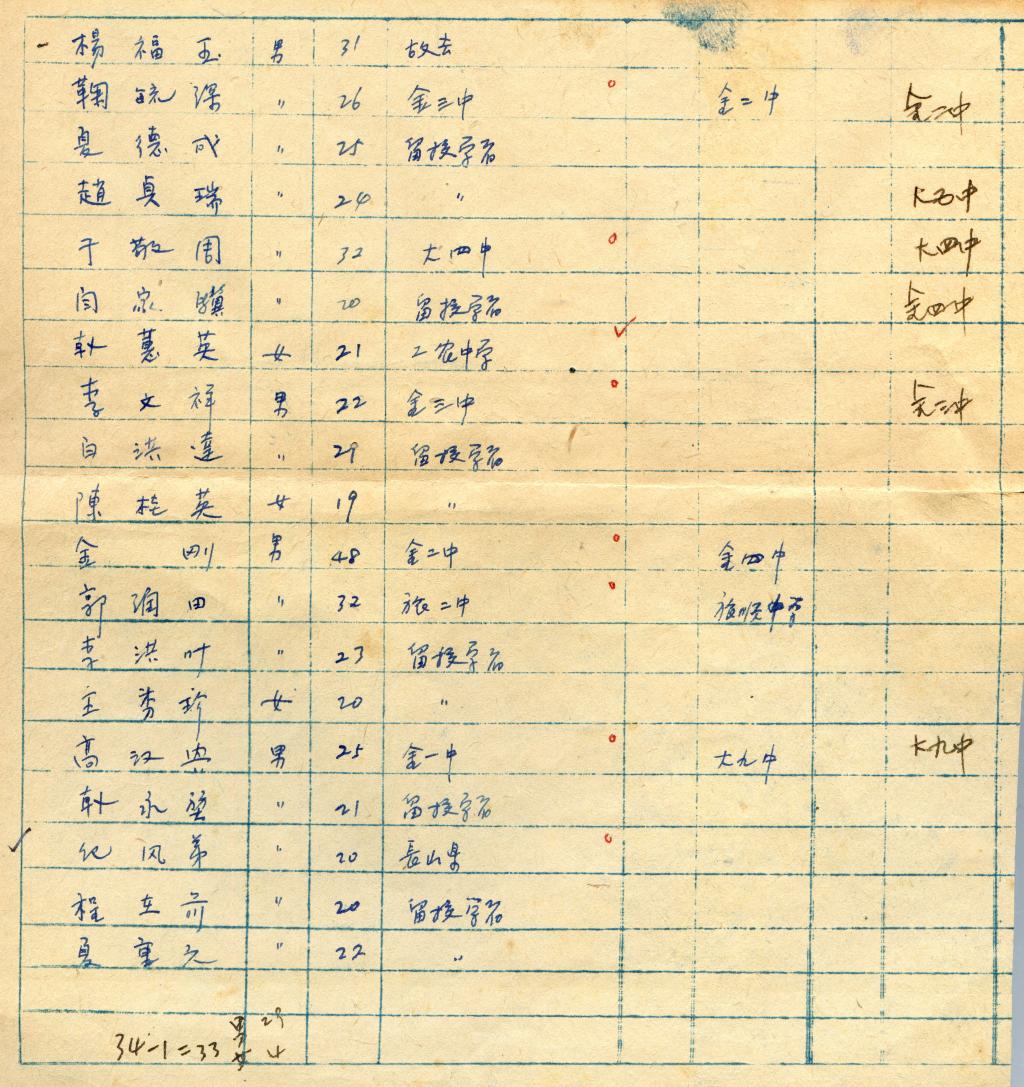 楊福玉 男 31 故去
鞠毓深 〃 26 金三中 金二中 金二中
夏德成 〃 25 留校学習
趙貞瑞 〃 24 〃 大五中
于敬周 〃 32 大四中 大四中
闫家驥 〃 20 留校学習 金四中
韩蕙英 女 21 工农中学
李文祥 男 22 金三中 金三中
白洪達 〃 29 留校学習
陳桂英 女 19 〃
金剛 男 48 金二中 金四中
郭润田 〃 32 旅二中 旅順中
李洪叶 〃 23 留校学習
王秀珍 女 20 〃
高汉典 男 25 金一中 大九中 大九中
韩永 〃 21 留校学習
纪风弟 〃 20 長山県
程在前 〃 20 留校学習
夏重元 〃 22 〃
34-1=33 男 29
女 4